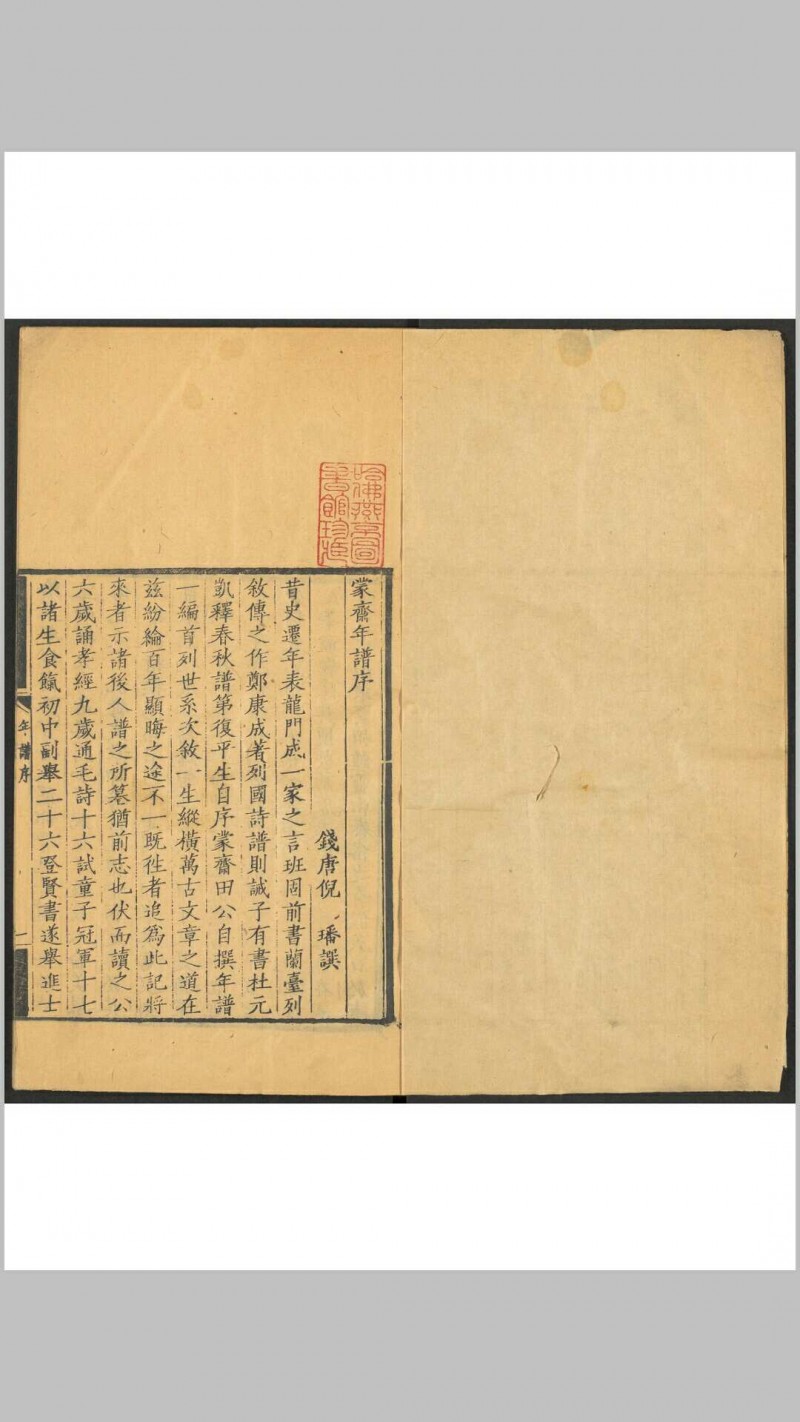 蒙齋年譜序
錢唐倪 璠譔
昔史遷年表龍門成一家之言班固前書蘭臺列
敘傳之作鄭康成著列國詩譜則誡子有書杜元
凱釋春秋譜第復平生自序蒙齋田公自撰年譜
一編首列世系次敘一生縱橫萬古文章之道在
茲紛綸百年顯晦之途不一既徃者追為此記將
來者示諸後人譜之所墓猶前志也伏而讀之公
六歲誦孝經九歲通毛詩十六試童子冠軍十七
以諸生食餼初中副舉二十六登賢書遂舉進士
年譜序
一
哈佛燕京圖書館珍藏